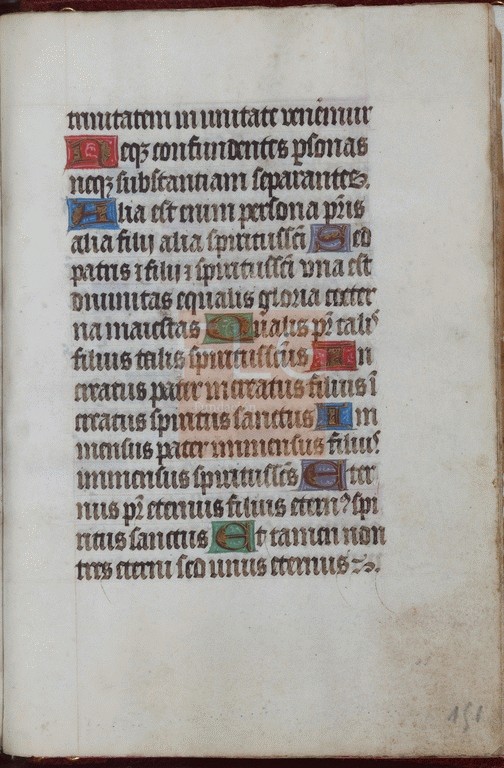 trinitatem in unitate veneremur
Neqꝫ confundentes ꝑsonas
neqꝫ substantiam separantes.
Alia est enim persona pr̄is
alia filij alia spiritussc̄i Sed
patris ⁊ filij ⁊ spiritussc̄i vna est
diuinitas equalis gloria coeter
na maiestas Qualis pr̄ talis
filius talis spiritussc̄us In
creatus pater increatus filius ī
creatus spiritus sanctus Im
mensus pater immensus filius
immensus spiritussc̄s Eter
nus pr̄ eternus filius eternꝰ spi
ritus sanctus Et tamen non
tres eterni sed unus eternus.
151